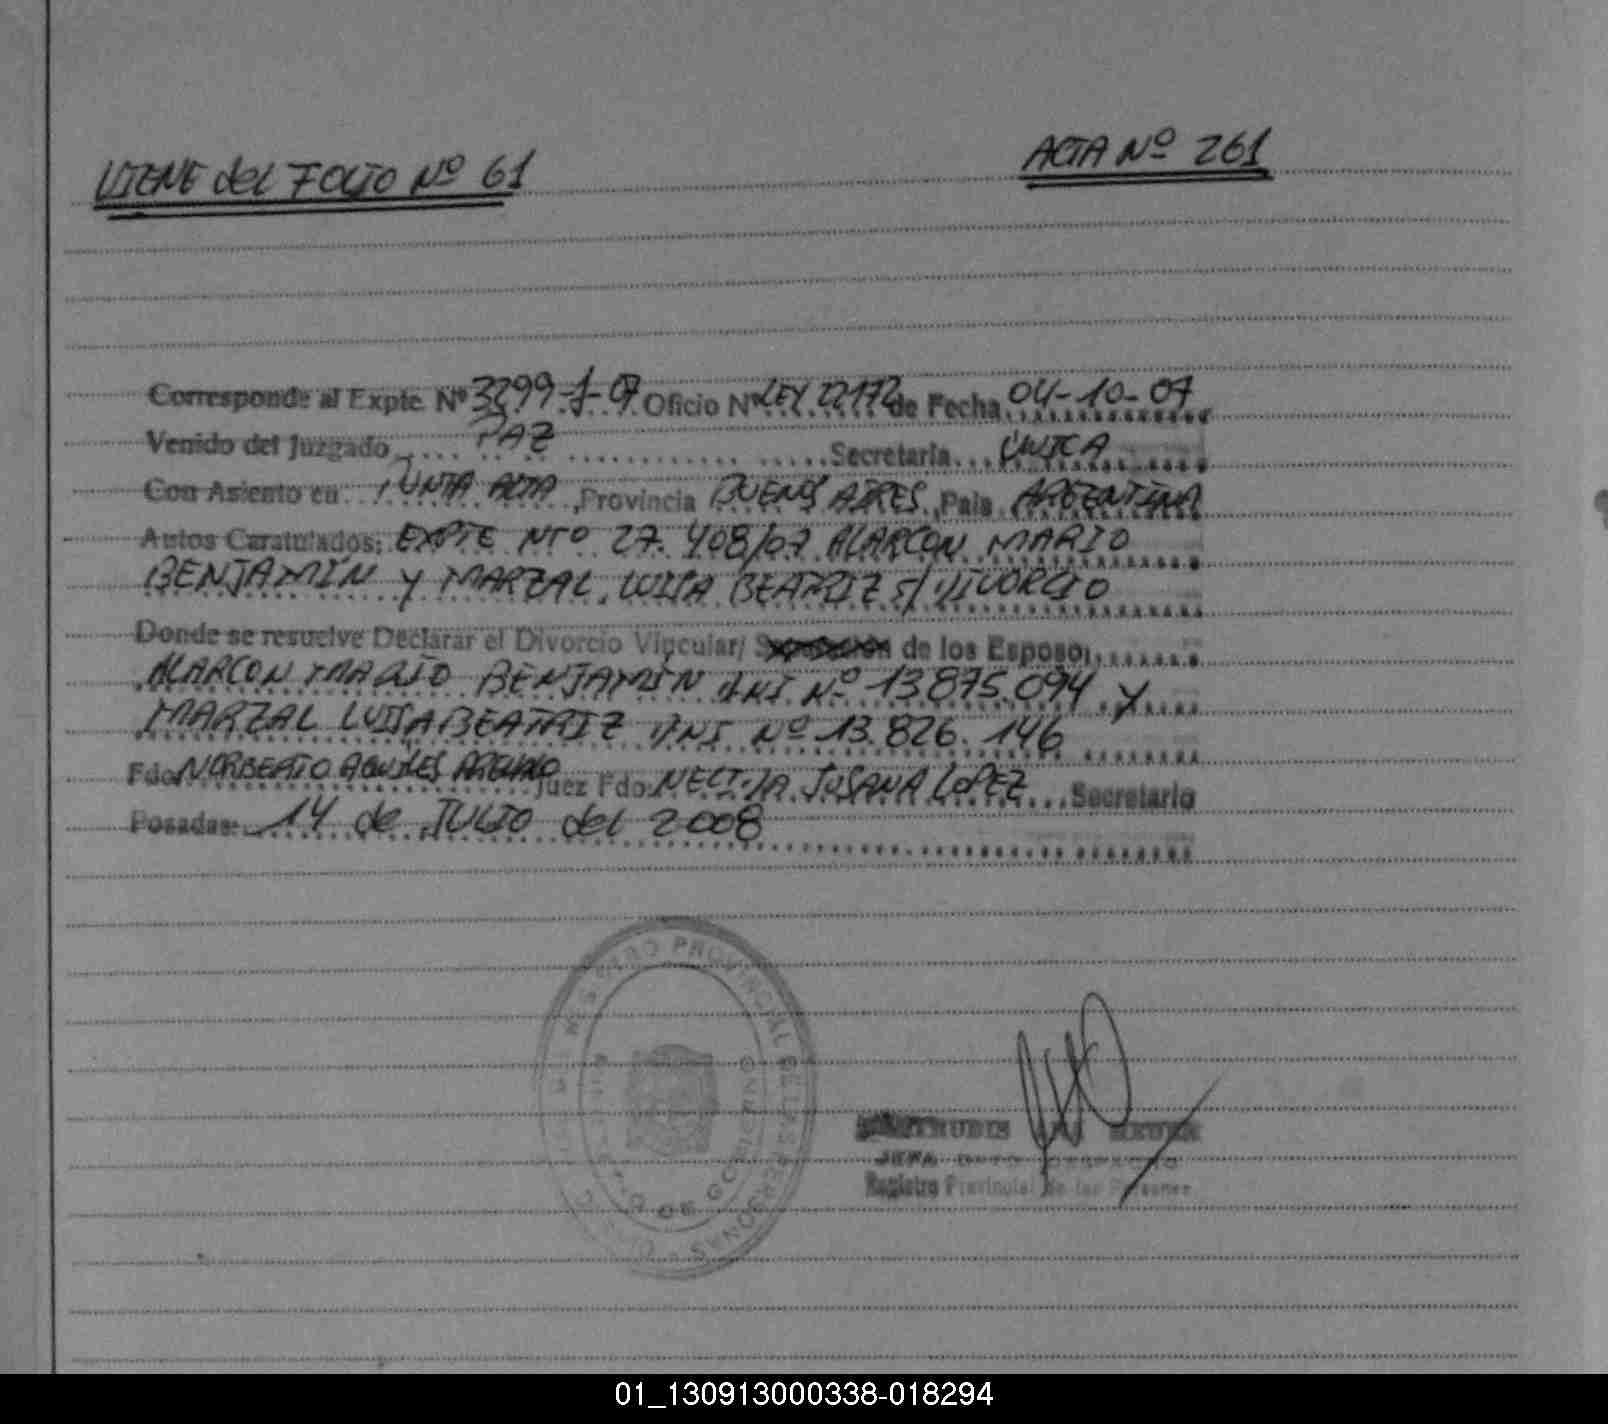 VIENE del FOLIO Nº 61
ACTA Nº 261
Corresponde al Expte. Nº 3299-J-07 Oficio Nº LEY 22172 de Fecha 04-10-07
Venido del Juzgado PAZ Secretaria UNICA
Con Asiento en PUNTA ALTA, Provincia BUENOS AIRES, Pais ARGENTINA
Autos Caratulados: EXPTE Nro 27.408/07 ALARCON MARIO
BENJAMIN y MARZAL, LUISA BEATRIZ s/ DIVORCIO
Donde se resuelve Declarar el Divorcio Vincular/ Separación de los Esposo,
ALARCON MARIO BENJAMIN DNI Nº 13875.094 y
MARZAL LUISA BEATRIZ DNI Nº 13.826.146
Fdo. NORBERTO AQUILES Juez Fdo. SUSANA LOPEZ Secretario
Posadas: 14 de JULIO del 2008
REGISTRO PROVINCIAL DE LAS PERSONAS
MINISTERIO DE GOBIERNO
JEFA DPTO DESPACHO
Registro Provincial de las Personas
01_130913000338-018294